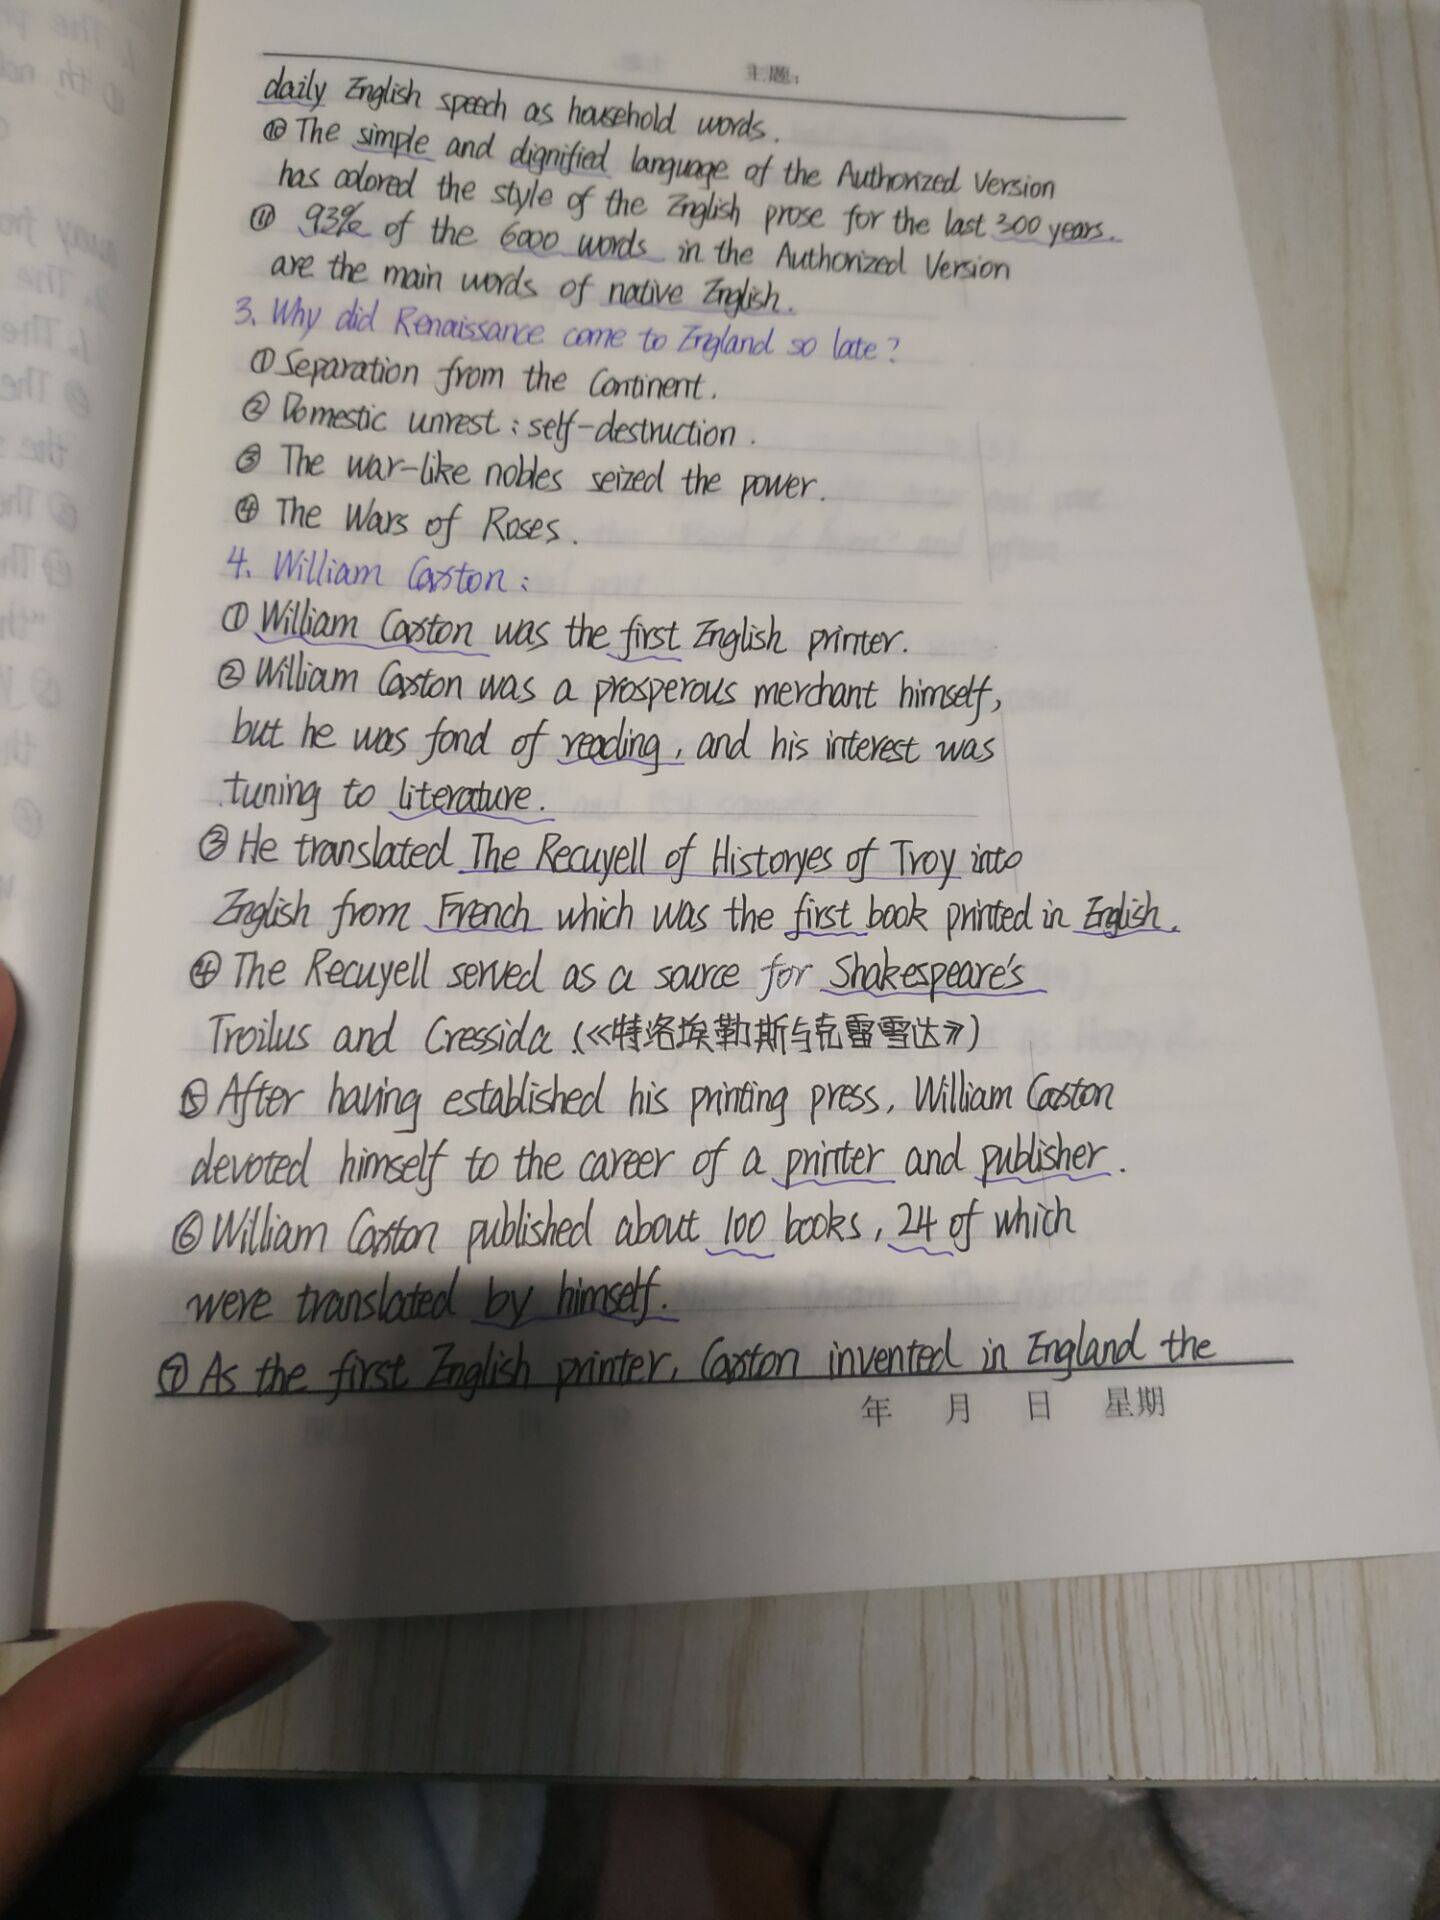 主题:
daily English speech as household words.
⑩ The simple and dignified language of the Authorized Version
has colored the style of the English prose for the last 300 years.
⑪ 93% of the 6000 words in the Authorized Version
are the main words of native English.
3. Why did Renaissance come to England so late?
① Separation from the Continent.
② Domestic unrest: self-destruction.
③ The war-like nobles seized the power.
④ The Wars of Roses.
4. William Caxton:
① William Caxton was the first English printer.
② William Caxton was a prosperous merchant himself,
but he was fond of reading, and his interest was
tuning to literature.
③ He translated The Recuyell of Historyes of Troy into
English from French which was the first book printed in English.
④ The Recuyell served as a source for Shakespeare's
Troilus and Cressida (《特洛埃勒斯与克雷雪达》)
⑤ After having established his printing press, William Caxton
devoted himself to the career of a printer and publisher.
⑥ William Caxton published about 100 books, 24 of which
were translated by himself.
⑦ As the first English printer, Caxton invented in England the
年 月 日 星期